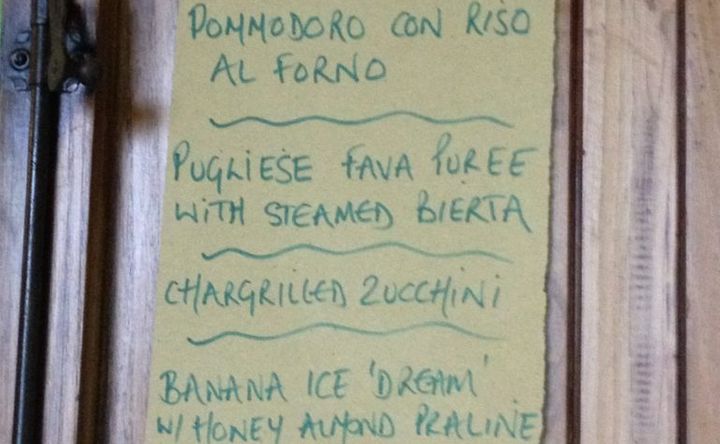 POMMODORO CON RISO
AL FORNO
PUGLIESE FAVA PUREE
WITH STEAMED BIERTA
CHARGRILLED ZUCCHINI
BANANA ICE 'DREAM'
W/ HONEY ALMOND PRALINE